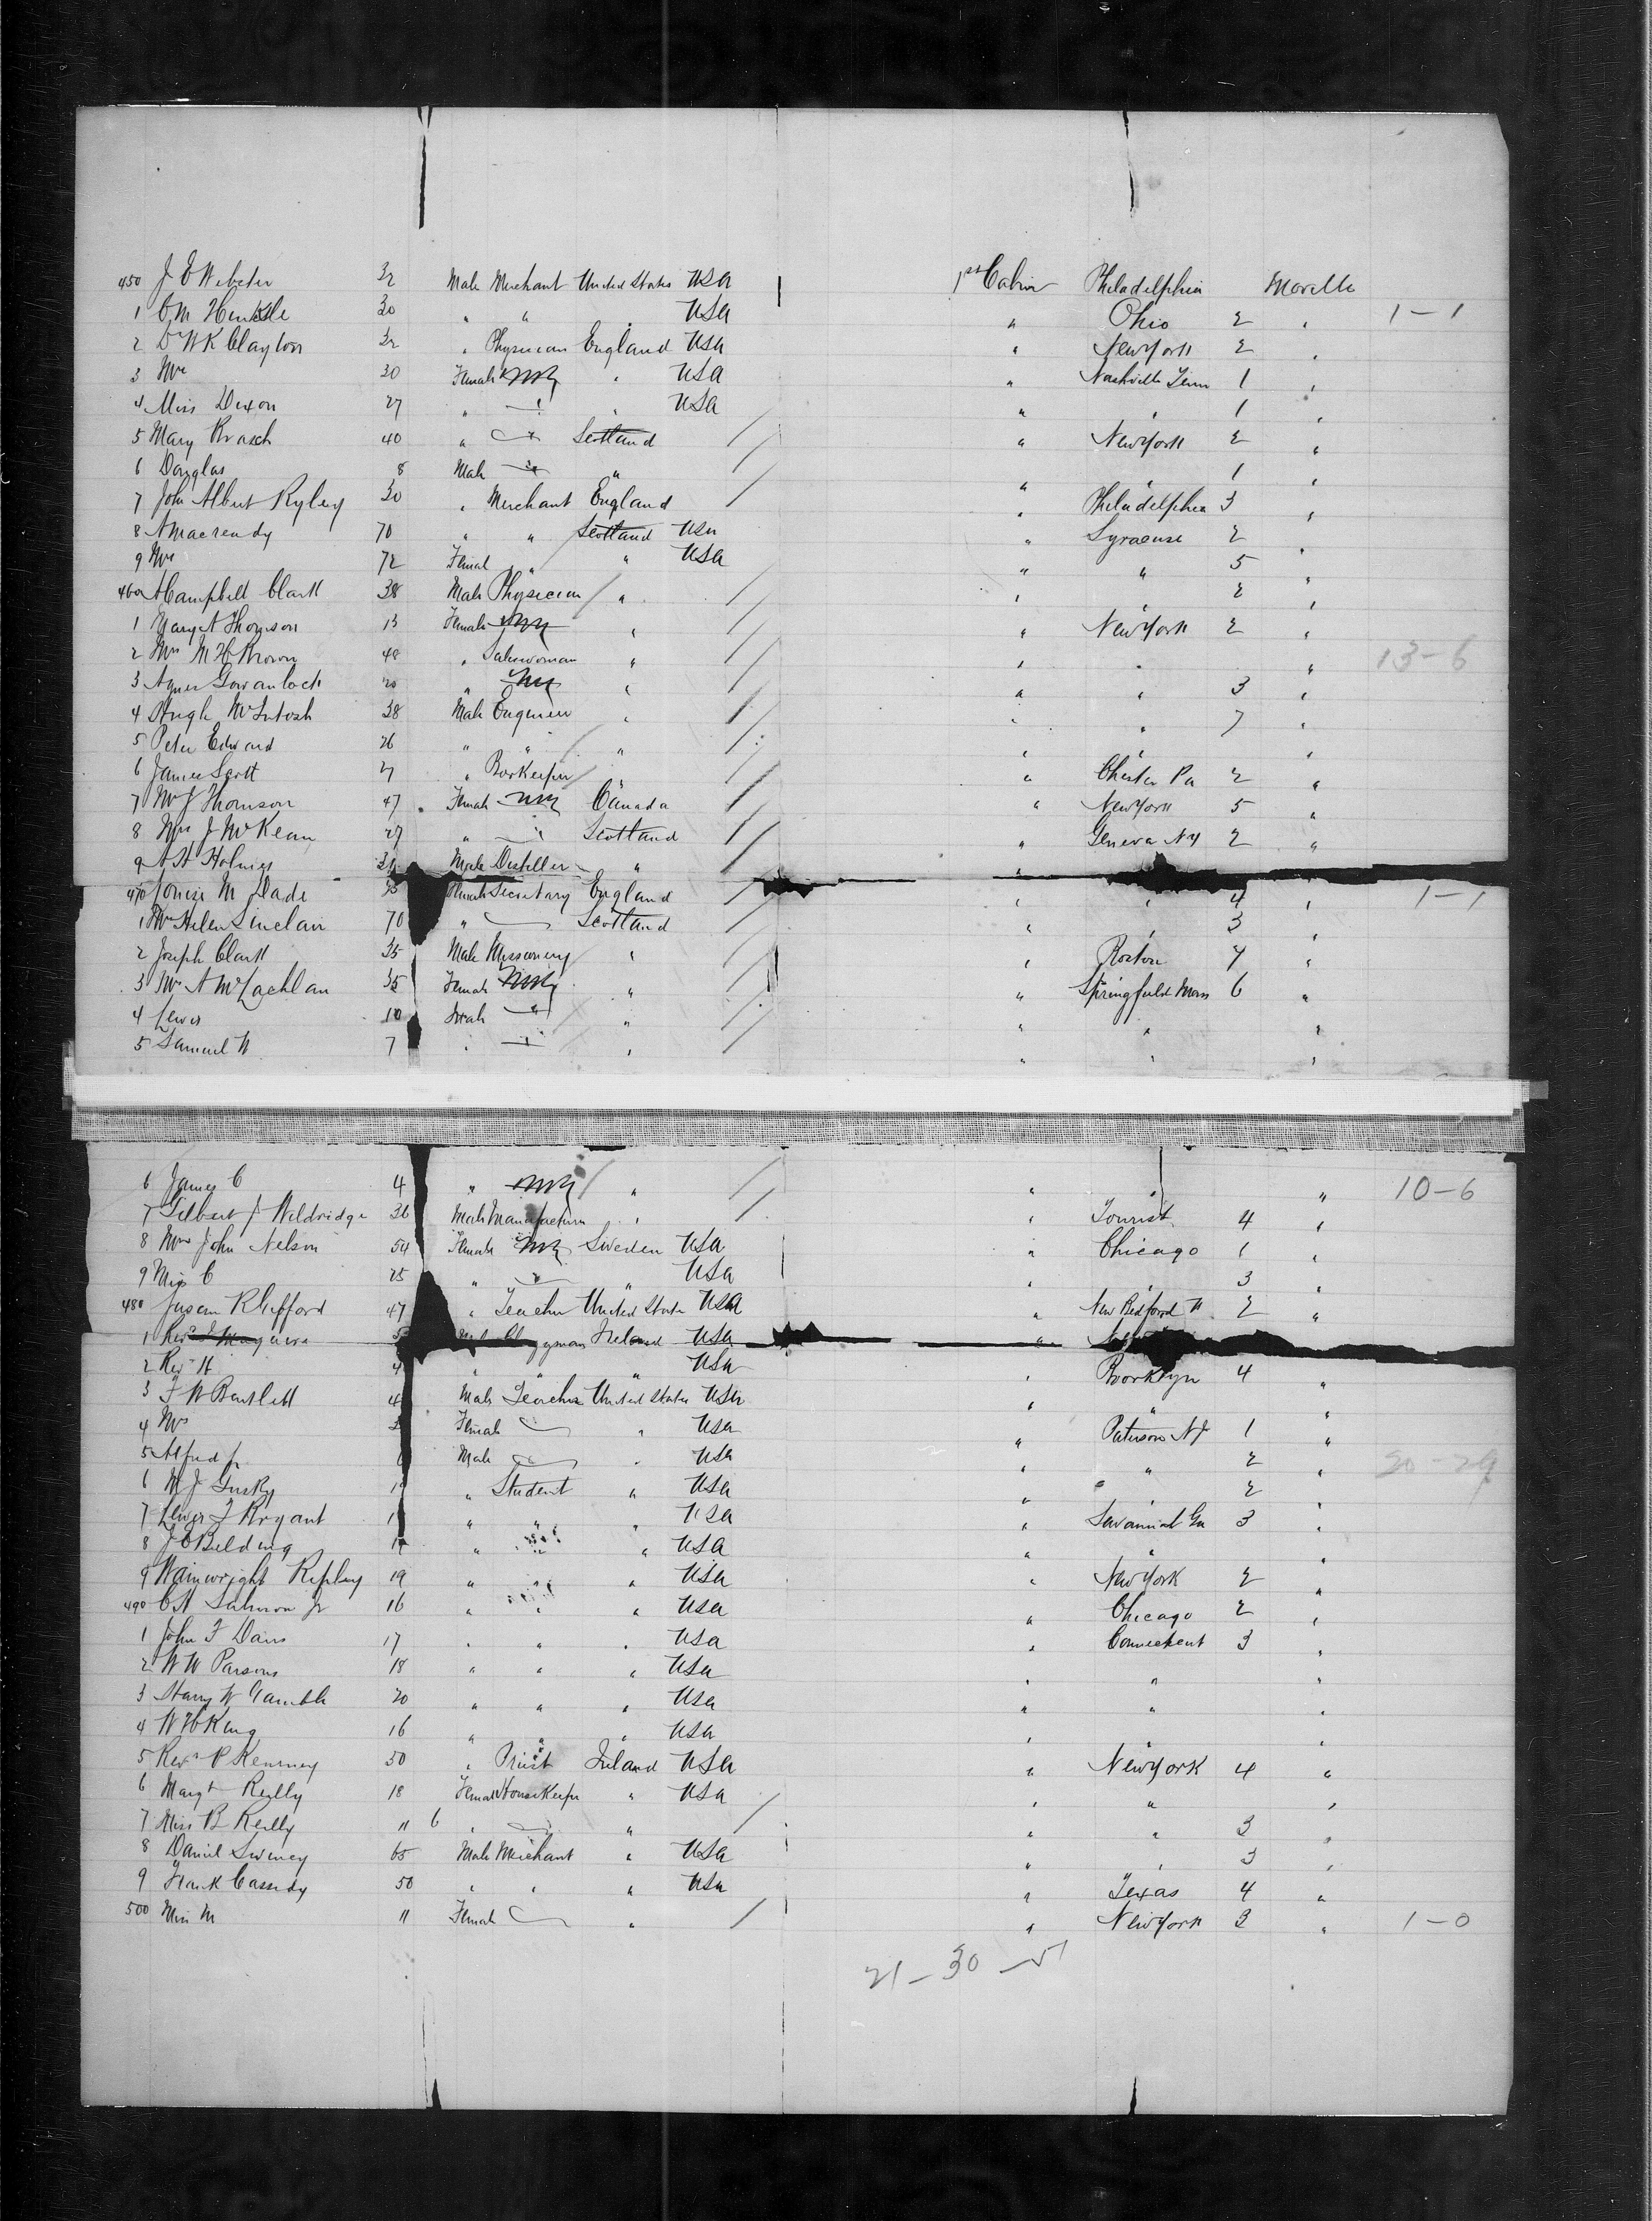 450 J E Webster 32 Male Merchant United States USA 1st Cabin Philadelphia Moville
1 C M Henkle 30 " " " USA " Ohio 2 " 1-1
2 Dr W K Clayton 32 " Physician England USA " New York 2 "
3 Mrs 30 Female " USA " Nashville Tenn 1 "
4 Miss Dixon 27 " " " USA " " 1 "
5 Mary Brasch 40 " " Scotland " New York 2 "
6 Douglas 8 Male " " " " 1 "
7 John Albert Ryley 30 " Merchant England " Philadelphia 3 "
8 A Macready 70 " " Scotland USA " Syracuse 2 "
9 Mrs 72 Female " " USA " " 5 "
460 A Campbell Clark 38 Male Physician " " " 2 "
1 Mary A Thomson 13 Female " " New York 2 "
2 Mrs M H Brown 48 " Saleswoman " " " " 13-6
3 Agnes Gowanlock 20 " " " " 3 "
4 Hugh McIntosh 38 Male Engineer " " " 7 "
5 Peter Edward 26 " " " " " "
6 James Scott " Barkeeper " " Chester Pa 2 "
7 J Thomson 47 Female Canada " New York 5 "
8 Mrs J McKean 29 " " Scotland " Geneva NY 2 "
9 A H Holmes Male Distiller " "
470 Louize M Dade Female Secretary England " " 4 " 1-1
1 Mrs Helen Sinclair 70 " Scotland " " 3 "
2 Joseph Clark 35 Male Missionery " " Boston 7 "
3 Mrs A McLachlan 35 Female " " Springfield Mass 6 "
4 Lewis 10 Male " " " " "
5 Samuel W 7 " " " " " "
6 James C 4 " " " " " 10-6
7 Gilbert J Wildridge 36 Male Manufacturer " " Tourist 4 "
8 Mrs John Nelson 54 Female Sweden USA " Chicago 1 "
9 Miss C 25 " " " USA " " 3 "
480 Susan R Gifford 47 " Teacher United States USA " New Bedford 2 "
1 Ireland USA "
2 Revd H 4 " " " USA " Brooklyn 4 "
3 F W Bartlett 4 Male Teacher United States USA " " "
4 Mrs Female " USA " Paterson NJ 1 "
5 Alfred Jr Male " USA " " 2 " 20-29
6 M J Gusky 1 " Student " USA " " 2 "
7 Lewis F Bryant 1 " " " USA " Savannah Ga 3 "
8 J C Belding 1 " " " USA " " "
9 Wainwright Ripley 19 " " " USA " New York 2 "
490 C A Salmon Jr 16 " " " USA " Chicago 2 "
1 John F Davis 17 " " " USA " Connecticut 3 "
2 W W Parsons 18 " " " USA " " "
3 Harry W Gamble 20 " " " USA " " "
4 W H King 16 " " " USA " " "
5 Revd P Kearney 50 " Priest Ireland USA " New York 4 "
6 Margt Reilly 18 Female Housekeeper " USA " " "
7 Miss B Reilly 11 6 " " " " 3 "
8 Daniel Swiney 65 Male Merchant " USA " " 3 "
9 Frank Cassidy 50 " " " USA " Texas 4 "
500 Miss M 11 Female " " New York 3 " 1-0
21-30